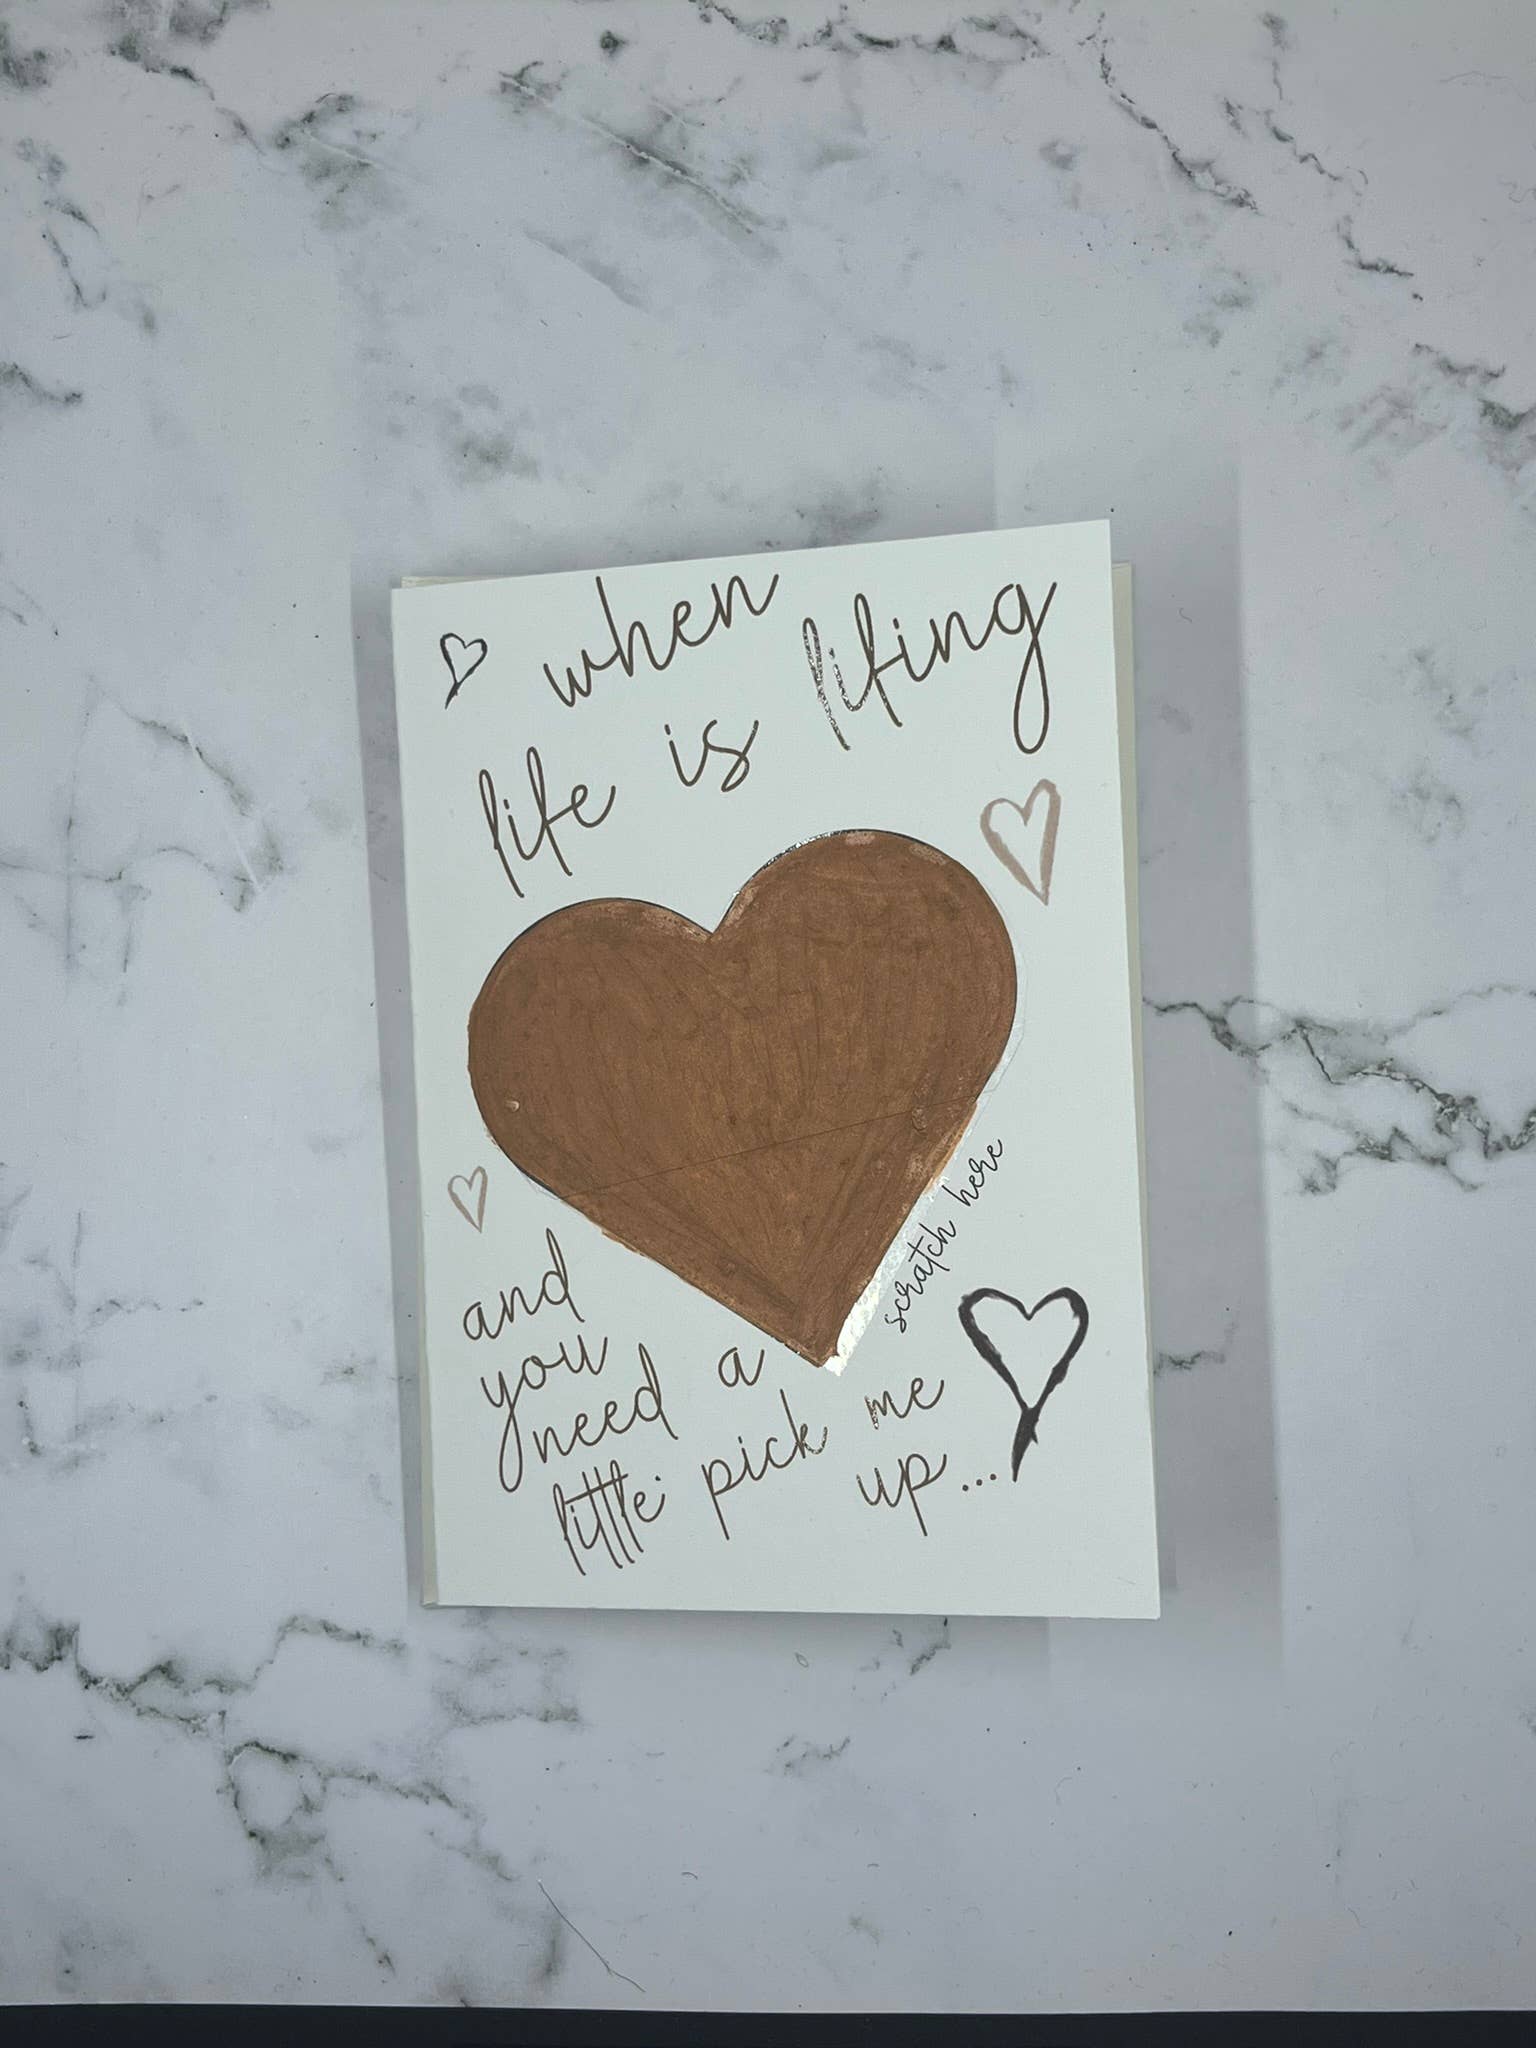 when
life is lifing
scratch here
and
you
need a
little pick me
up...